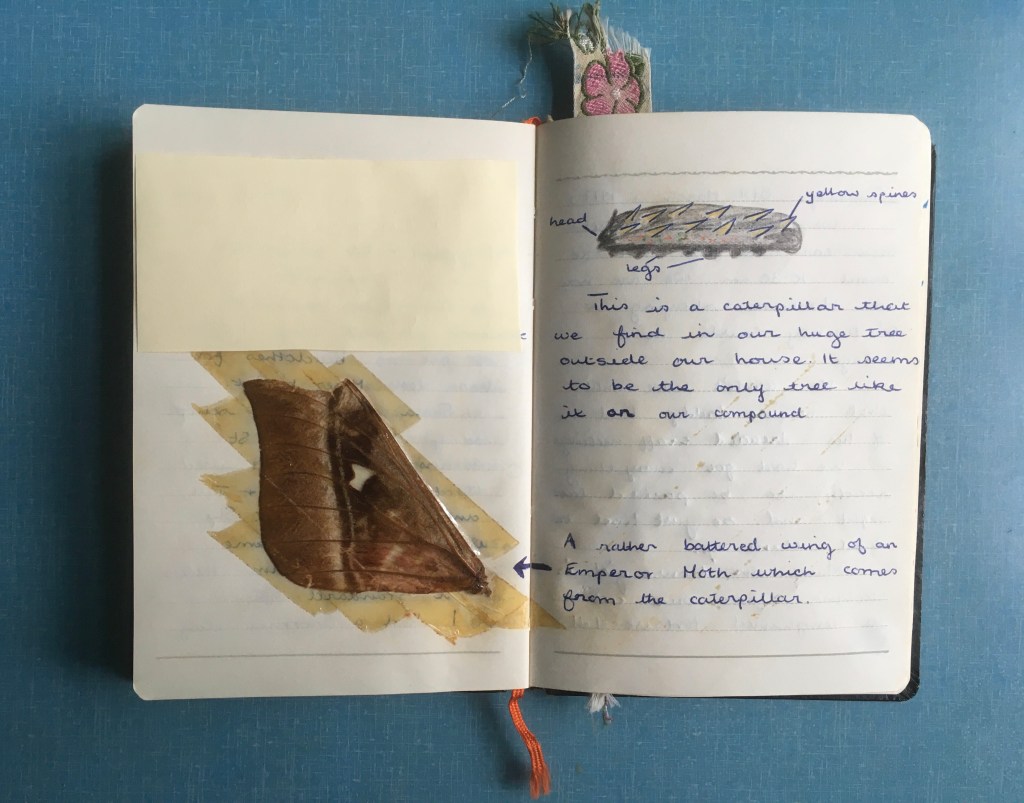 yellow spines
head
legs
This is a caterpillar that
we find in our huge tree
outside our house. It seems
to be the only tree like
it on our compound
A rather battered wing of an
Emperor Moth which comes
from the caterpillar.